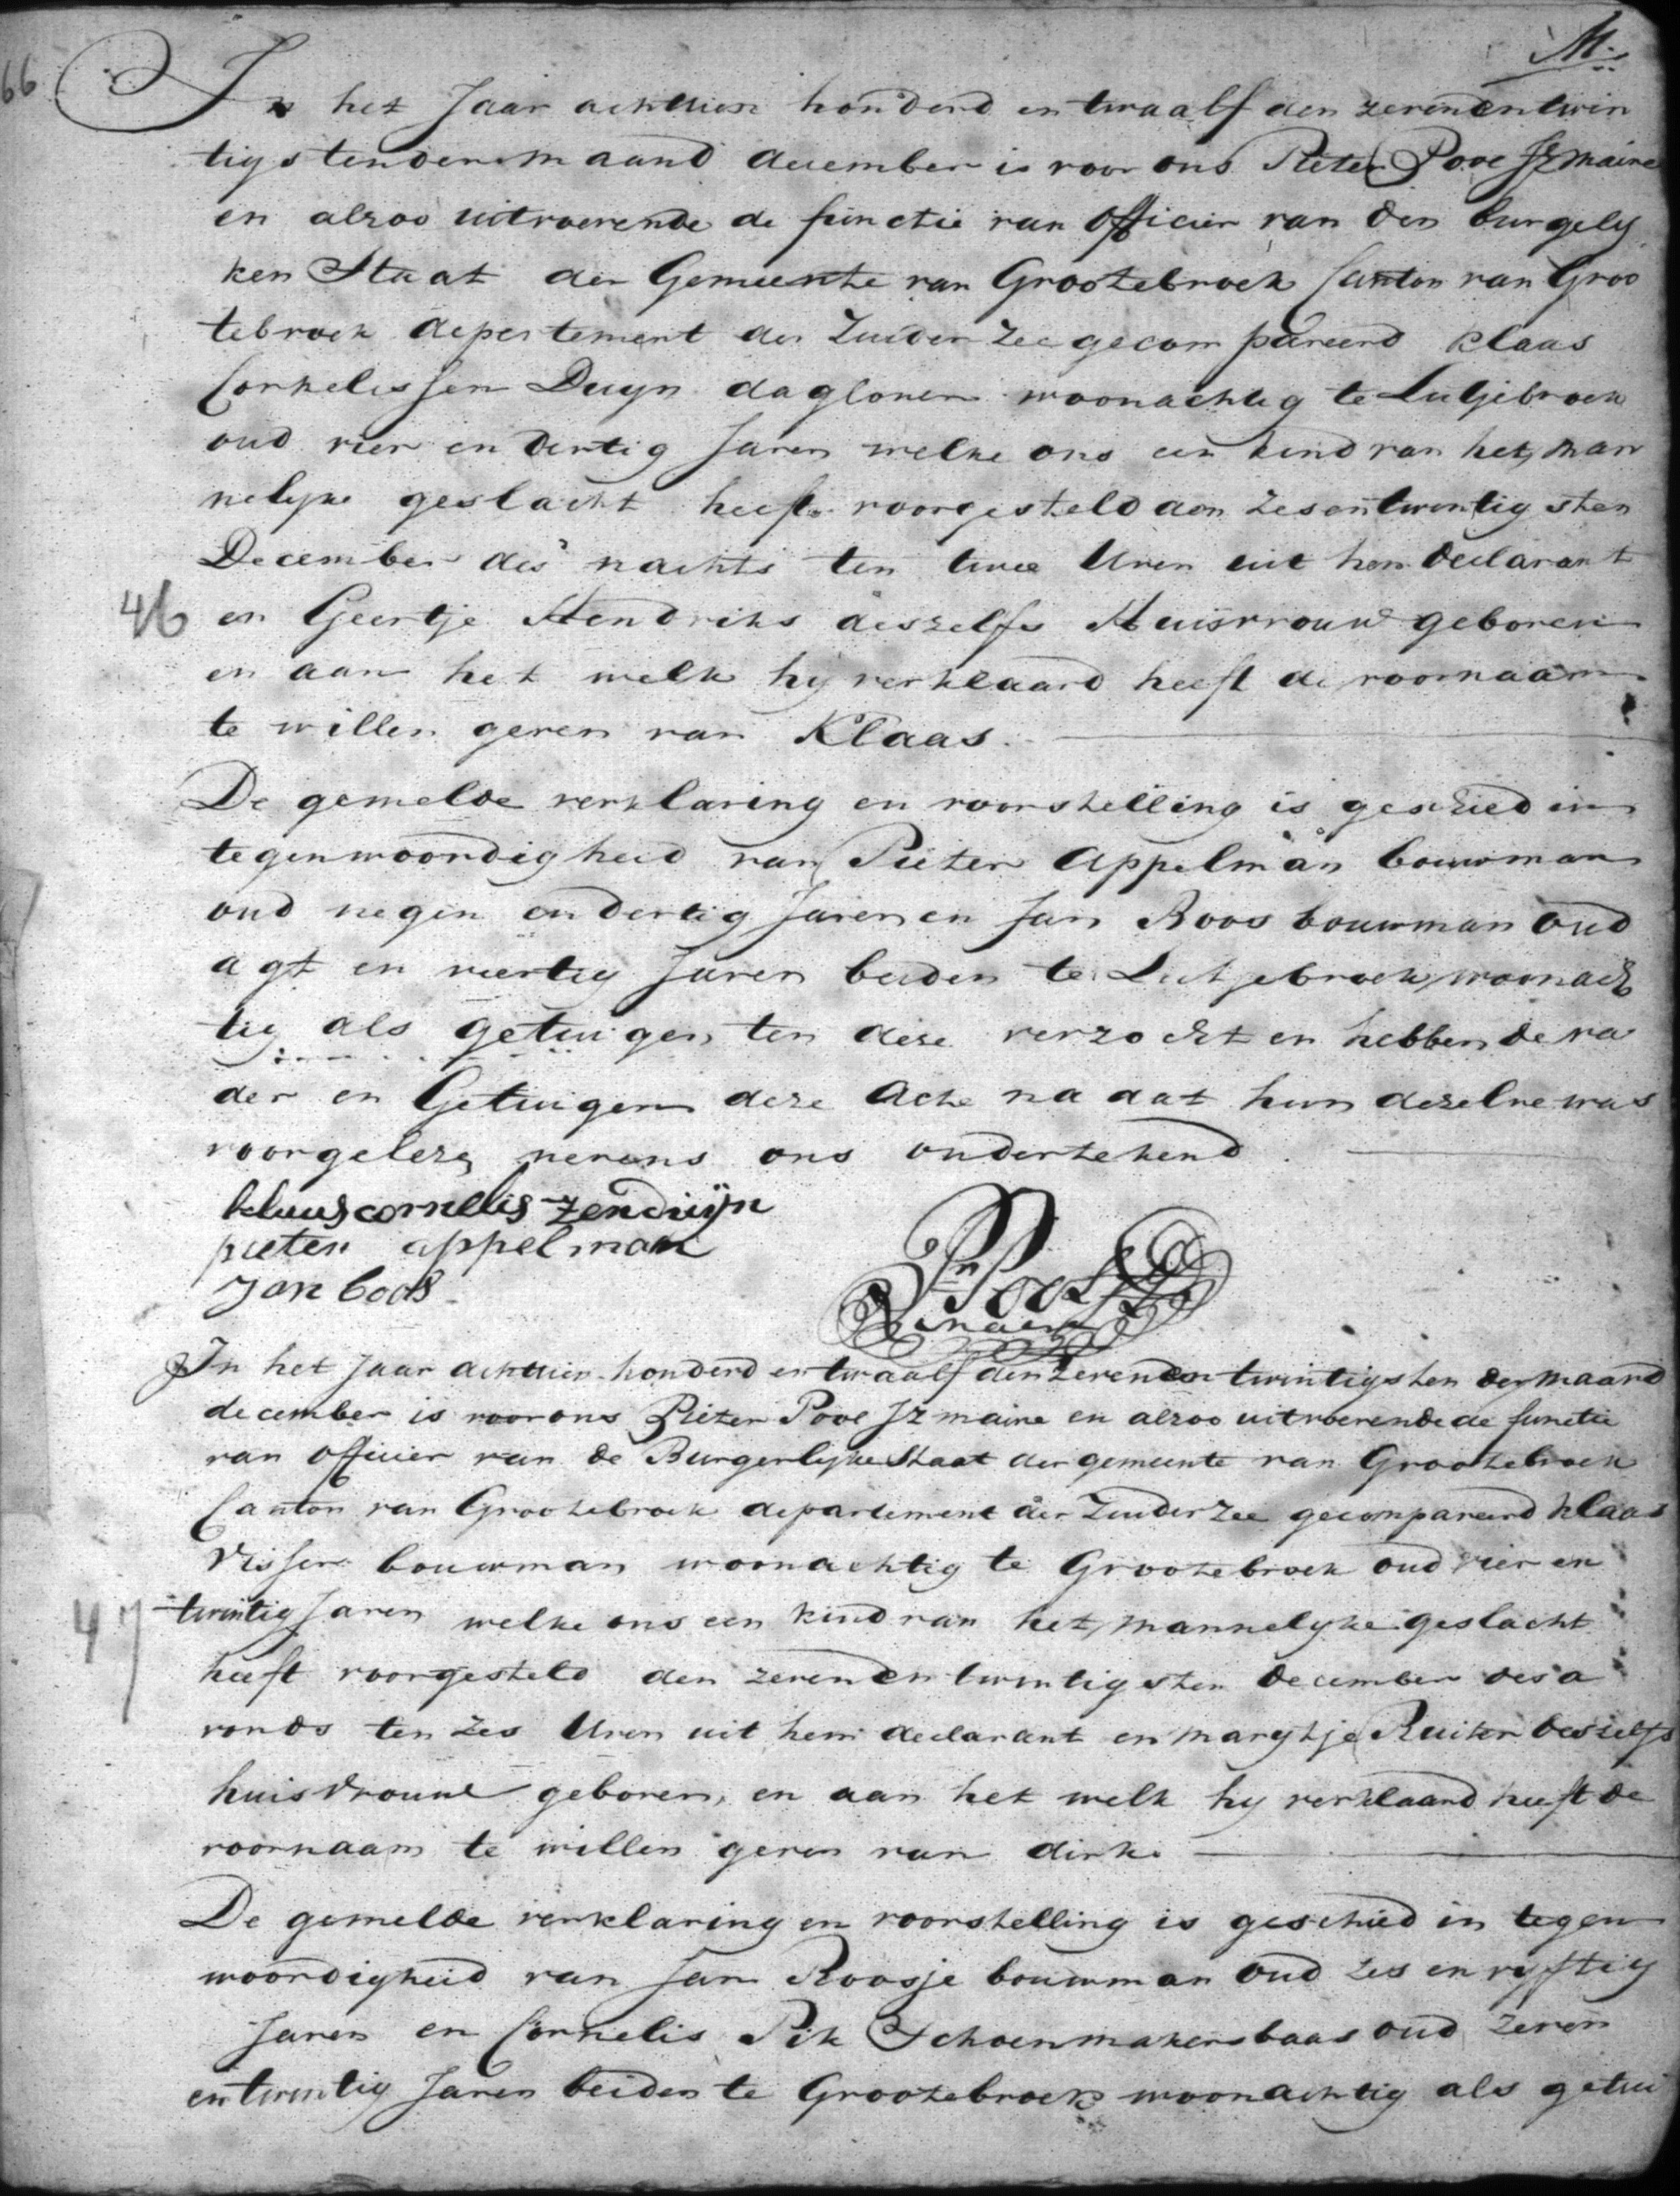 66
M.
In het Jaar achttien honderd en twaalf den zevenentwin
tigsten der maand december is voor ons Pieter Pooe Jz maire
en alzoo uitvoerende de functie van officier van den burgely
ken Staat der Gemeente van Grootebroek Canton van Groo
tebroek depertement der Zuider Zee gecompareerd Klaas
Cornelissen Duyn dagloner woonachtig te Lutjebroek
oud vier en dertig Jaren welke ons een kind van het man
nelyke geslacht heeft voorgesteld den zesentwintigsten
December des nachts ten twee Uren uit hem declarant
46
en Geertje Hendriks deszelfs Huisvrouw geboren
en aan het welk hy verklaard heeft de voornaam
te willen geven van Klaas.
De gemelde verklaring en voorstelling is geschied in
tegenwoordigheid van Pieter Appelman bouwman
oud negen en dertig Jaren en Jan Boos bouwman oud
agt en veertig Jaren beiden te Lutjebroek woonach
tig als getuigen ten deze verzocht en hebben de va
der en Getuigen deze Acte na dat hun dezelve was
voorgeleze nevens ons ondertekend.
klaas cornelis zen duijn
pieter appelman
Jan boos
In het Jaar achttien honderd en twaalf den zevenden twintigsten der maand
december is voor ons Pieter Pooe Jz maire en alzoo uitvoerende de functie
van officier van de Burgerlyke Staat der gemeente van Grootebroek
Canton van Grootebroek departement der Zuider Zee gecompareerd Klaas
Visser bouwman woonachtig te Grootebroek oud vier en
47
twintig Jaren welke ons een kind van het mannelyke geslacht
heeft voorgesteld den zevenden twintigsten december des a
vonds ten zes Uren uit hem declarant en marytje Ruiter deszelfs
huisvrouwe geboren, en aan het welk hy verklaard heeft de
voornaam te willen geven van dirk.
De gemelde verklaring en voorstelling is geschied in tegen
woordigheid van Jan Roosje bouwman oud zes en vyftig
Jaren en Cornelis Pik Schoenmakersbaas oud zeven
en twintig Jaren beiden te Grootebroek woonachtig als getui